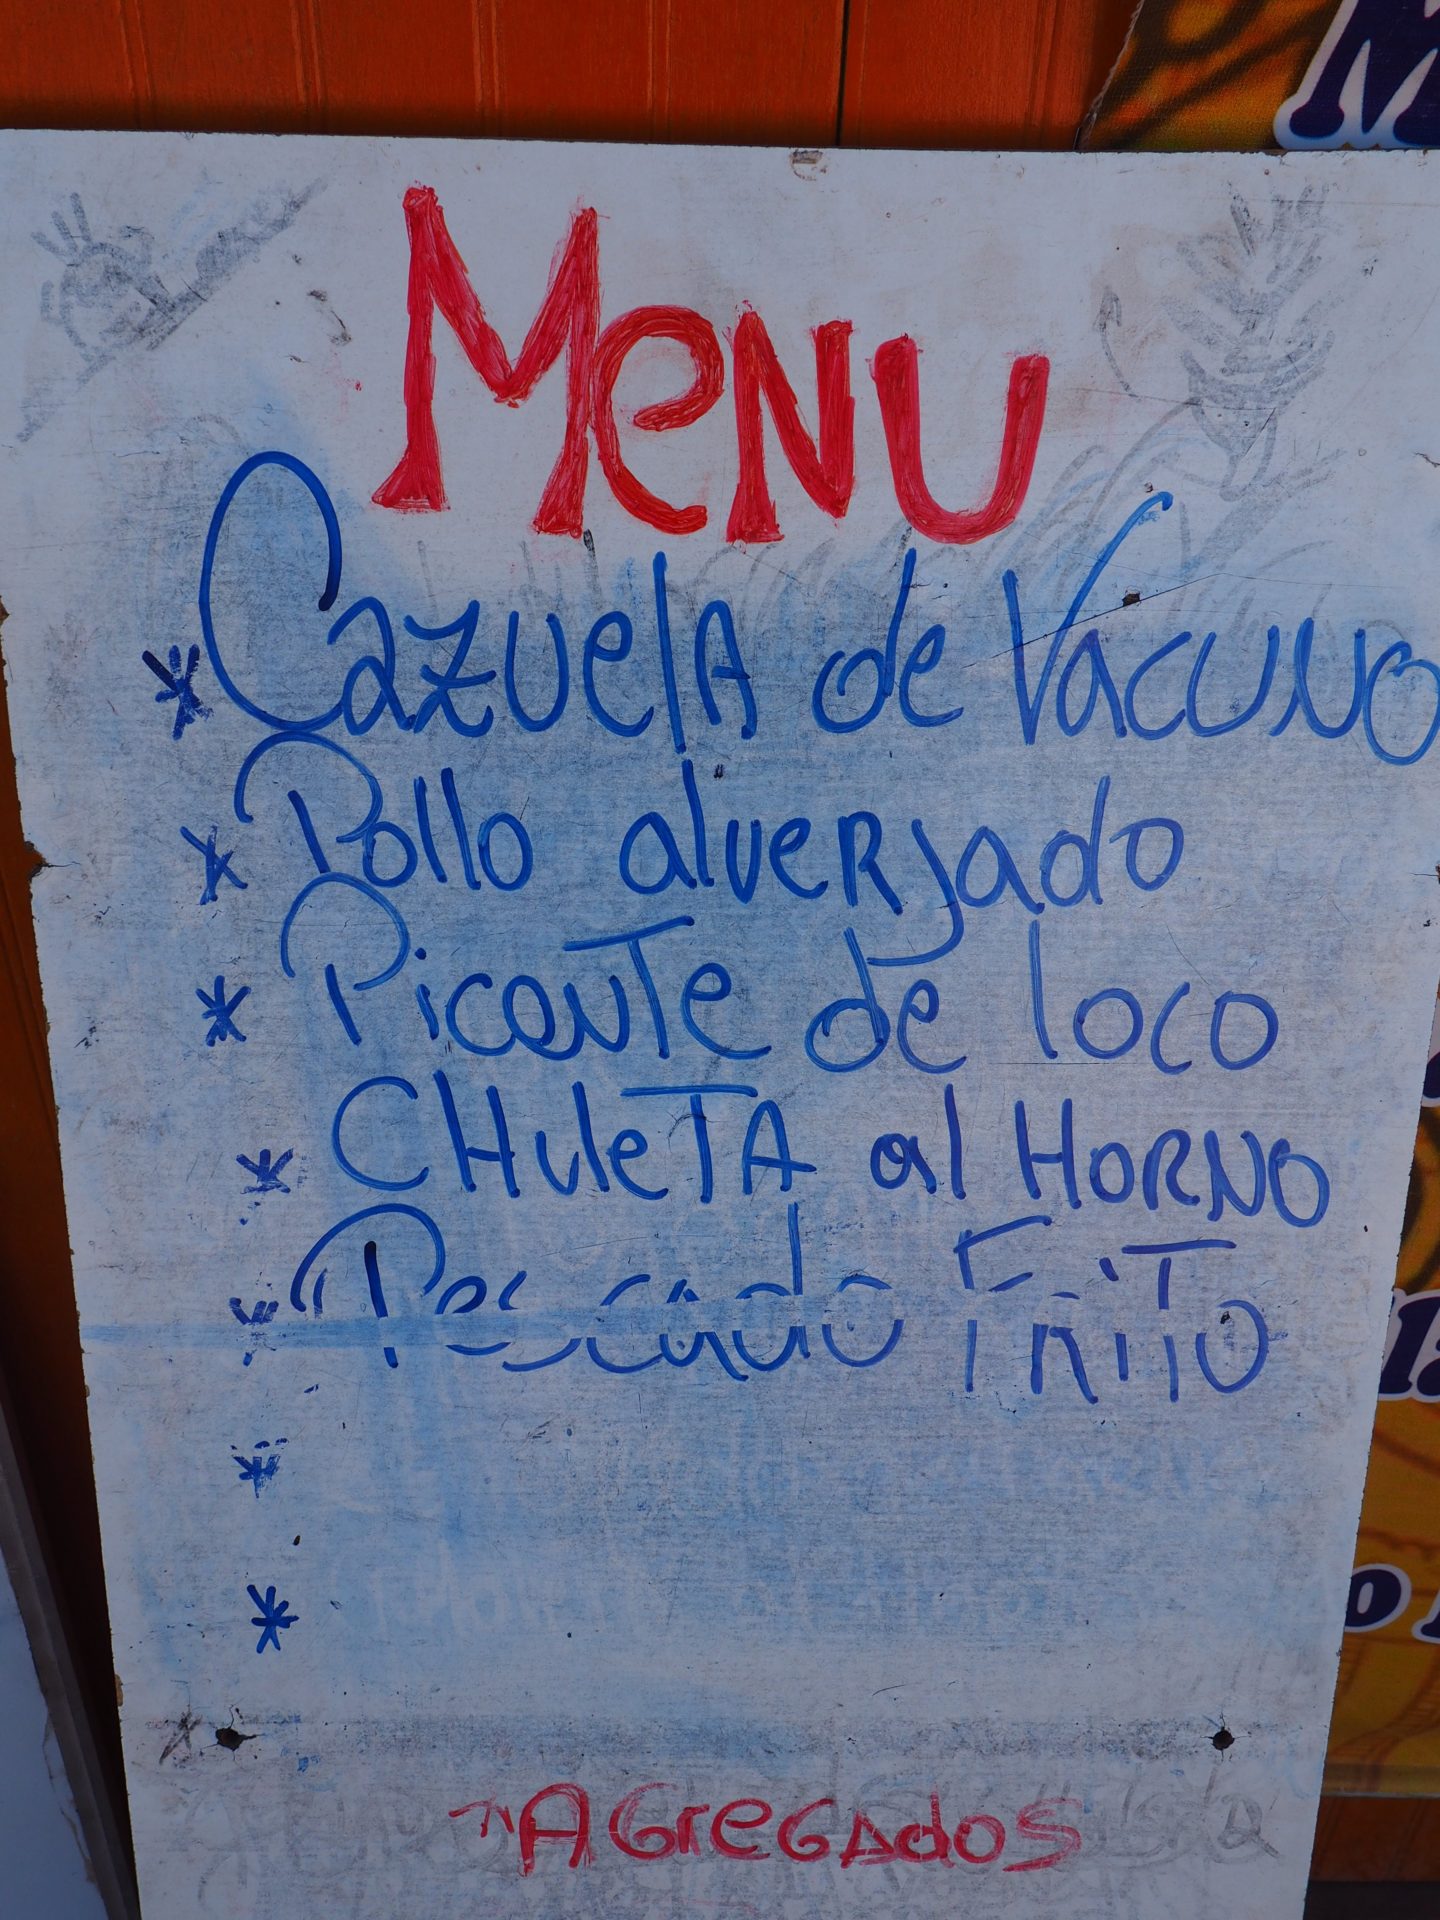 MeNU
* CazuelA de Vacuno
* Pollo alveRjado
* PicanTe de loco
* CHuleTA al HoRNO
* Pescado FRiTo
*
*
AGreGAdos